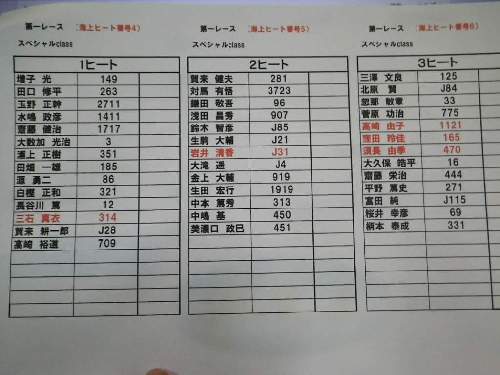 第一レース （海上ヒート番号4）
スペシャルclass
1ヒート
増子 光 149
田口 修平 263
玉野 正幹 2711
水嶋 政彦 1411
齋藤 健治 1717
大数加 光治 3
浦上 正樹 351
田畑 一雄 185
源 勇二 86
白樫 正和 321
長谷川 篤 12
三石 真衣 314
賀来 耕一郎 J28
高崎 裕道 709
第一レース （海上ヒート番号5）
スペシャルclass
2ヒート
賀来 健夫 281
対馬 有悟 3723
鎌田 敬吾 96
浅田 昌秀 907
鈴木 智彦 J85
生駒 大輔 J21
岩井 清香 J31
大滝 遥 J4
金上 大輔 919
生田 宏行 1919
中本 篤秀 313
中嶋 基 450
美濃口 政巳 451
第一レース （海上ヒート番号6）
スペシャルclass
3ヒート
三澤 文良 125
北原 賢 J84
忽那 敏章 33
菅原 功治 775
高崎 由子 1121
窪田 玲佳 165
須長 由季 470
大久保 皓平 16
齋藤 栄治 444
平野 篤史 271
富田 純 J115
桜井 幸彦 69
柄本 泰成 331